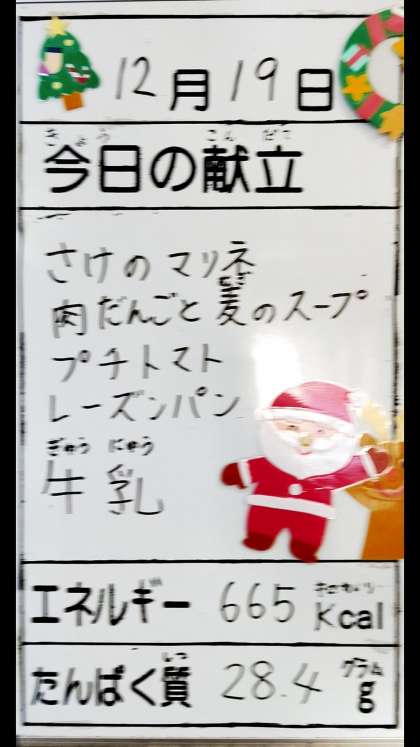 12月19日
きょう こんだて
今日の献立
さけのマリネ
むぎ
肉だんごと麦のスープ
プチトマト
レーズンパン
ぎゅう にゅう
牛乳
キロカロリー
エネルギー 665 Kcal
しつ グラム
たんぱく質 28.4 g